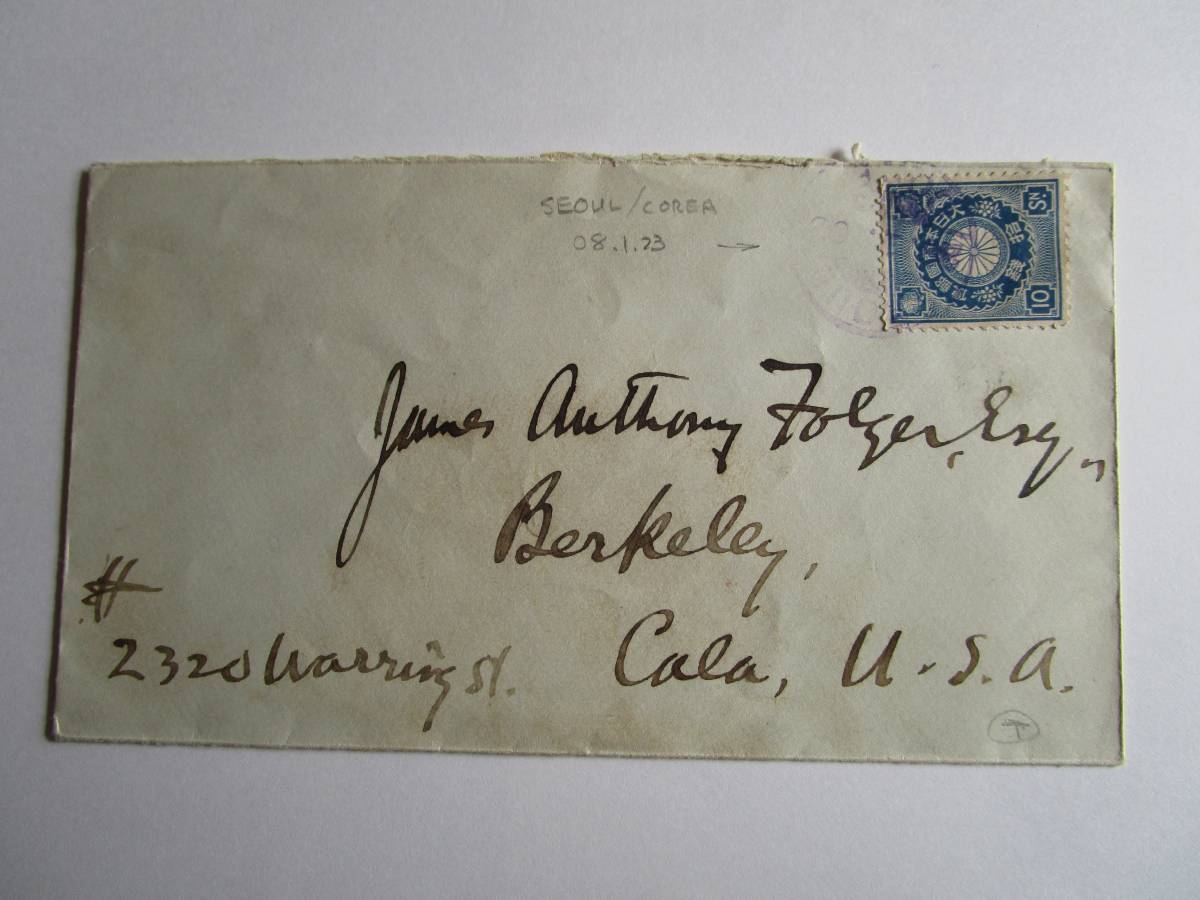 SEOUL/COREA
08.1.23 →
大日本帝國郵便
郵便
10 SN
James Anthony Folger, Esq.,
Berkeley,
#
2320 Warring St.
Cala, U.S.A.
T